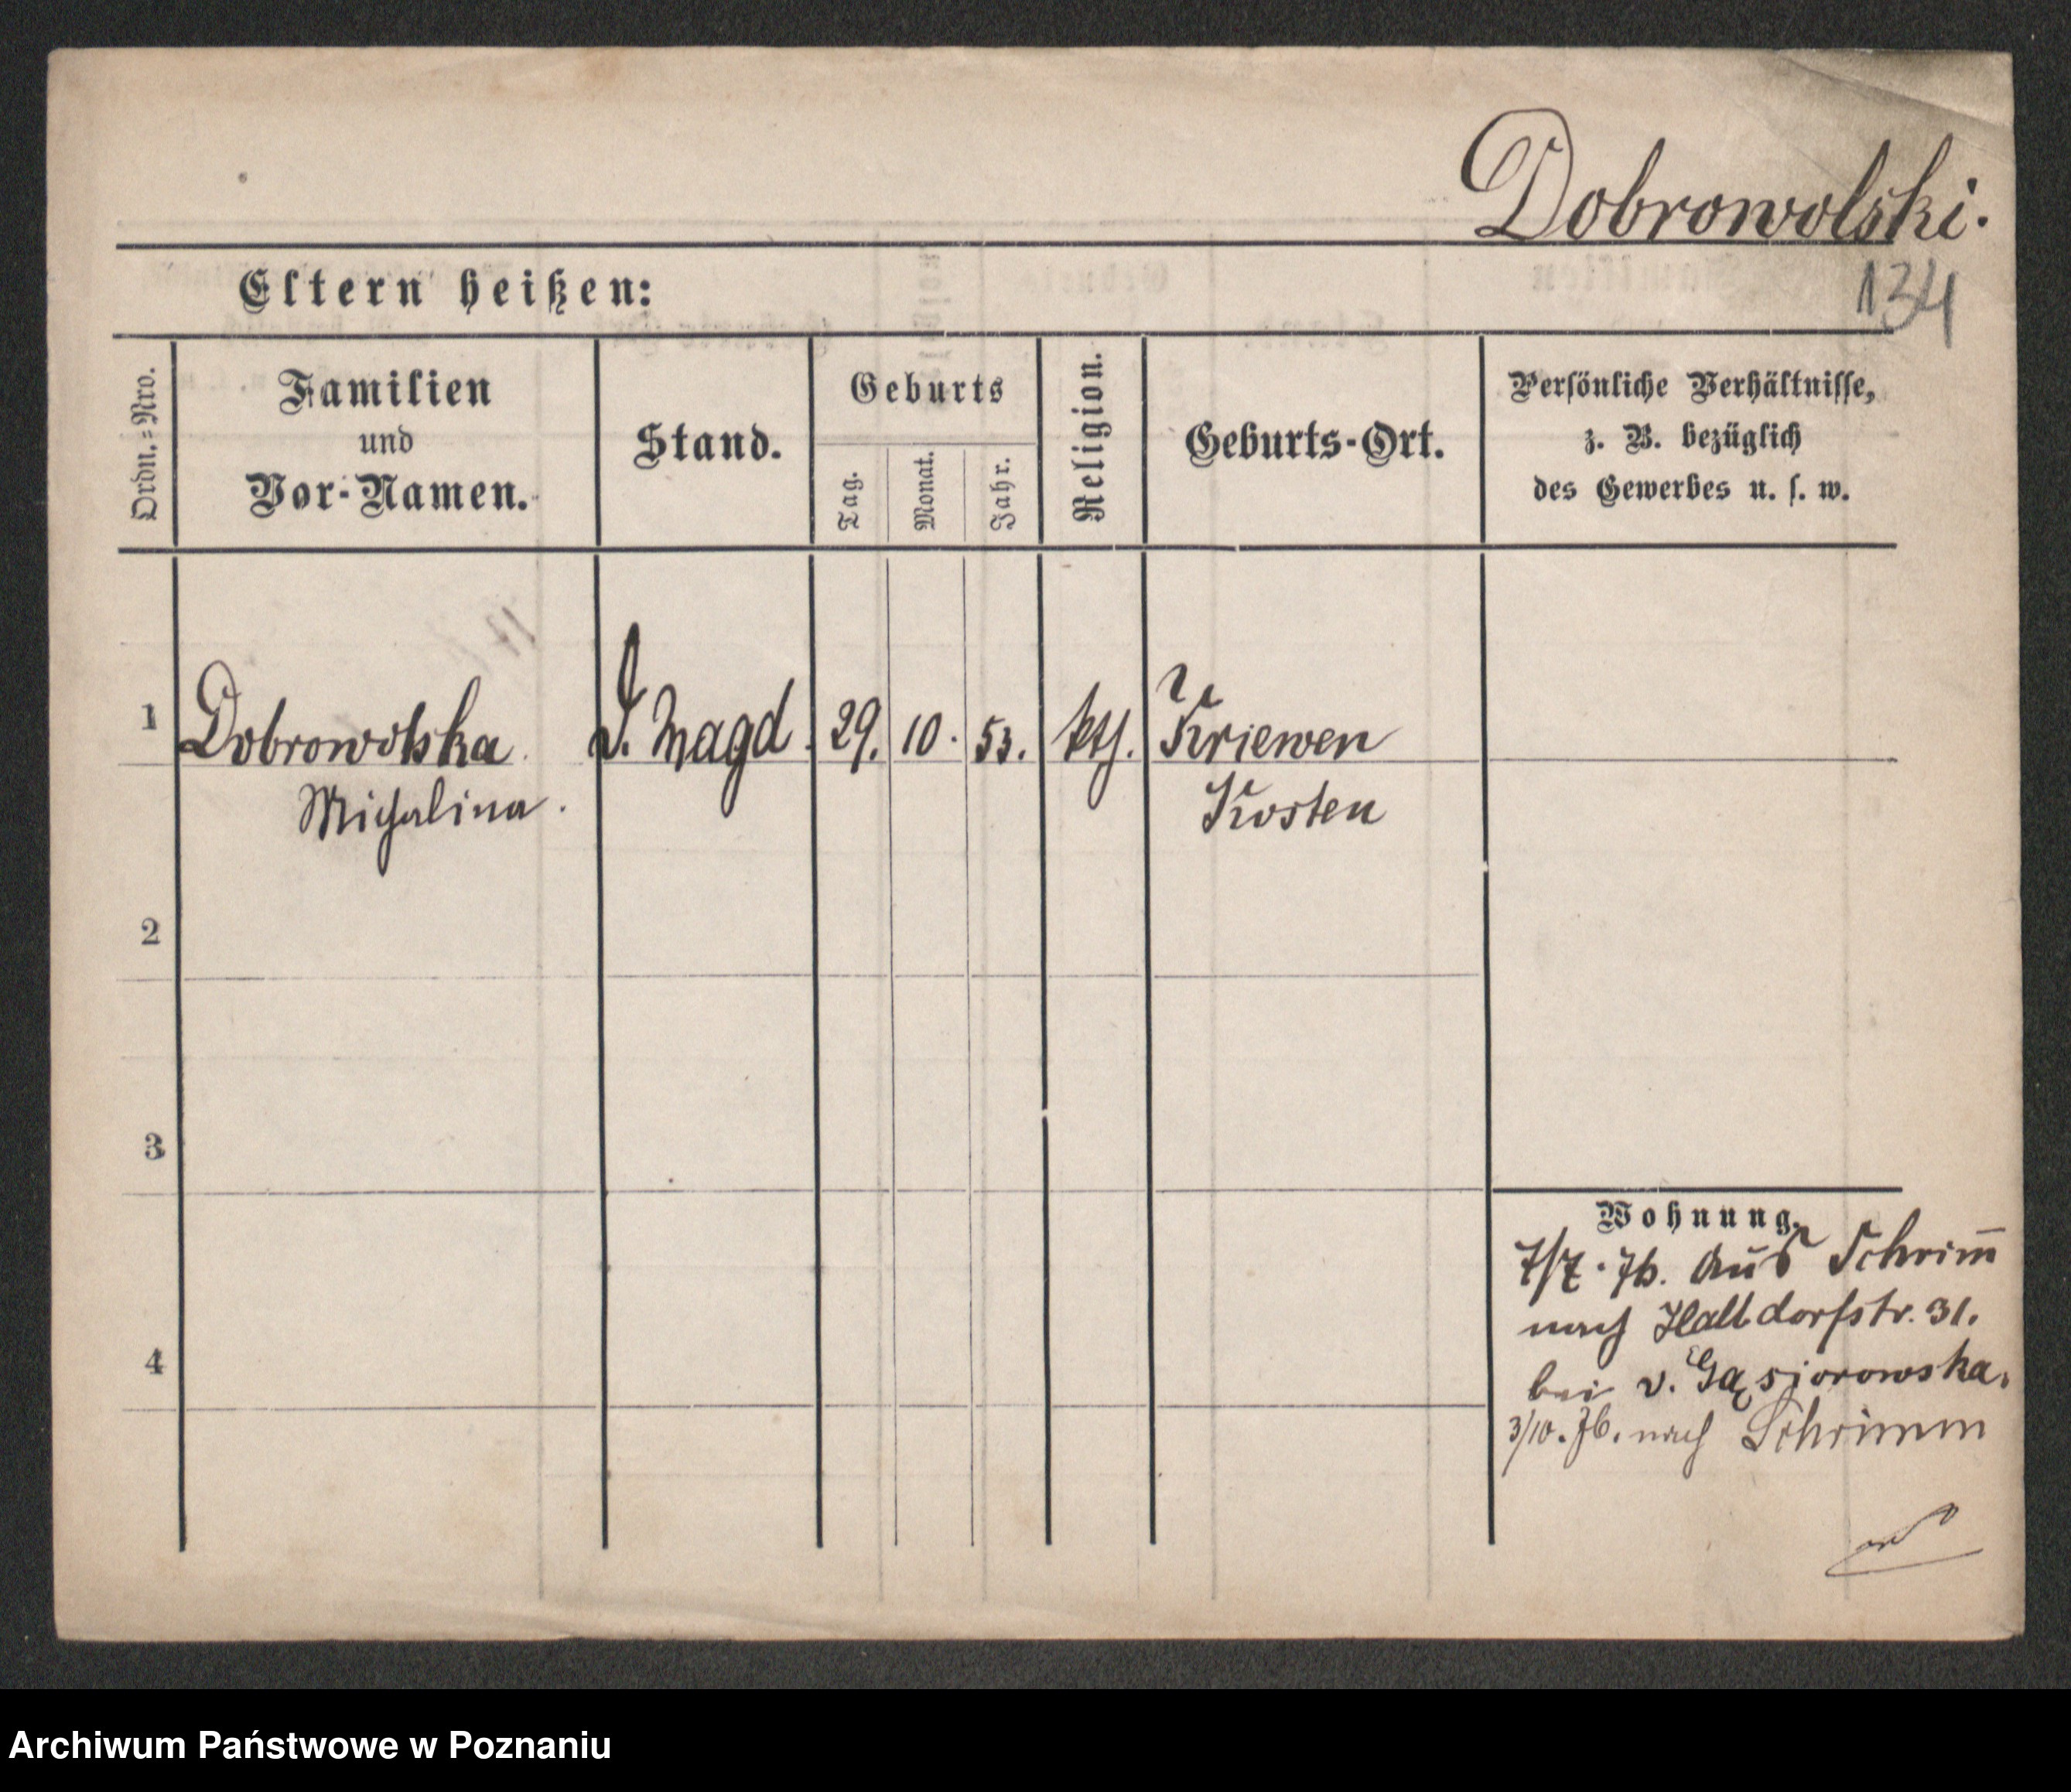 Dobrowolski.
134
Eltern heißen:
Ordn.=Nro.
Familien
und
Vor-Namen.
Stand.
Geburts
Tag.
Monat.
Jahr.
Religion.
Geburts-Ort.
Persönliche Verhältnisse,
z. B. bezüglich
des Gewerbes u. s. w.
1 Dobrowolska Magd. 29. 10. 53. kth. Kriewen
Michalina. Kosten
2
3
4
Wohnung.
7/7. 76. aus Schrim̅
nach Halbdorfstr. 31.
bei v. Gąsiorowska.
3/10. 76. nach Schrimm
Archiwum Państwowe w Poznaniu